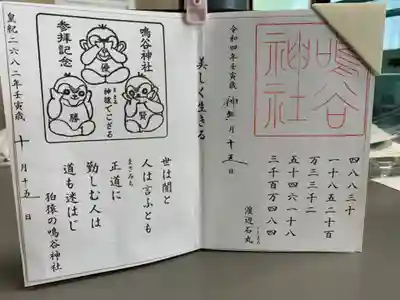 鳴谷
神社
四八八三十
一十八五二十百
万三三千二
五十四六一十八
三千百万四八四
渡辺石丸
令和四年壬寅歳 神無月十五日
美しく生きる
鳴谷神社
優
参拝記念
賢
勝
まさる
神猿でござる
世は闇と
人は言ふとも
正道に
勤しむ人は
道も迷はじ
狛猿の鳴谷神社
皇紀二六八二年壬寅歳 十月十五日